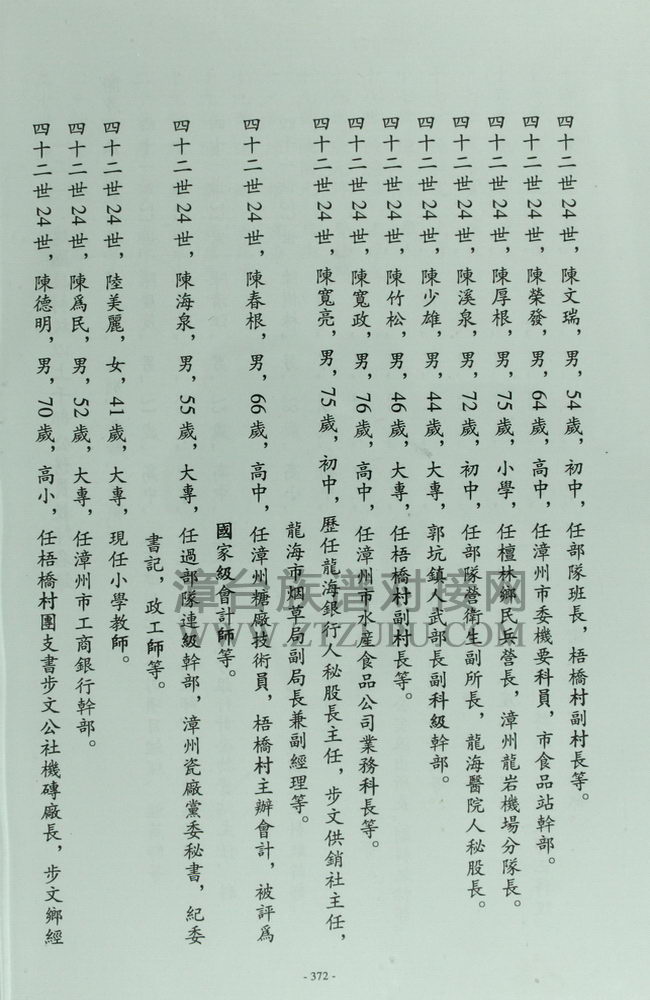 四十二世24世，陳文瑞，男，54歲，初中，任部隊班長，梧橋村副村長等。
四十二世24世，陳榮發，男，64歲，高中，任漳州市委機要科員，市食品站幹部。
四十二世24世，陳厚根，男，75歲，小學，任檀林鄉民兵營長，漳州龍岩機場分隊長。
四十二世24世，陳溪泉，男，72歲，初中，任部隊營衛生副所長，龍海醫院人秘股長。
四十二世24世，陳少雄，男，44歲，大專，郭坑鎮人武部長副科級幹部。
四十二世24世，陳竹松，男，46歲，大專，任梧橋村副村長等。
四十二世24世，陳寬政，男，76歲，高中，任漳州市水産食品公司業務科長等。
四十二世24世，陳寬亮，男，75歲，初中，歷任龍海銀行人秘股長主任，步文供銷社主任，
龍海市烟草局副局長兼副經理等。
四十二世24世，陳春根，男，66歲，高中，任漳州糖廠技術員，梧橋村主辦會計，被評爲
國家級會計師等。
四十二世24世，陳海泉，男，55歲，大專，任過部隊連級幹部，漳州瓷廠黨委秘書，紀委
書記，政工師等。
四十二世24世，陸美麗，女，41歲，大專，現任小學教師。
四十二世24世，陳爲民，男，52歲，大專，任漳州市工商銀行幹部。
四十二世24世，陳德明，男，70歲，高小，任梧橋村團支書步文公社機磚廠長，步文鄉經
漳台族谱对接网
WWW.ZTZUPU.COM
- 372 -